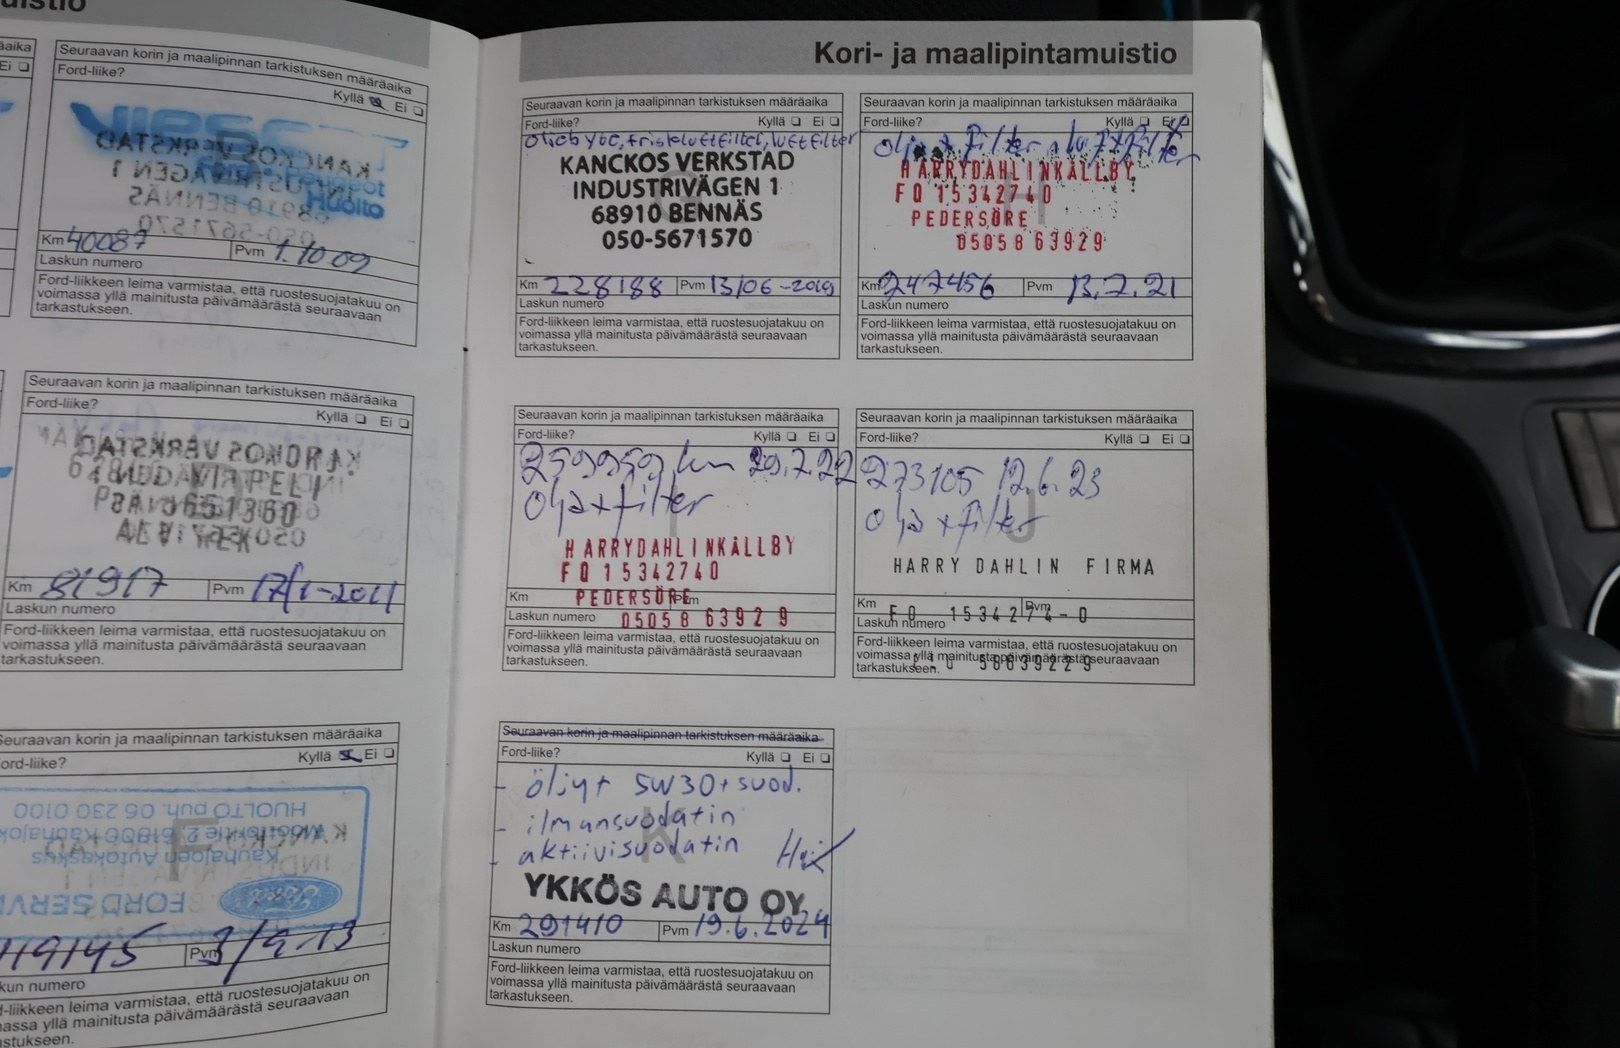 uistio
äaika
Ei
Seuraavan korin ja maalipinnan tarkistuksen määräaika
Ford-liike?
Kyllä Ei
Huolto
KANCKOS VERKSTAD
INDUSTRIVÄGEN 1
68910 BENNÄS
050-5671570
Km 40087 Pvm 1.10.09
Laskun numero
Ford-liikkeen leima varmistaa, että ruostesuojatakuu on
voimassa yllä mainitusta päivämäärästä seuraavaan
tarkastukseen.
Seuraavan korin ja maalipinnan tarkistuksen määräaika
Ford-liike?
Kyllä Ei
Km 81917 Pvm 17/1-2011
Laskun numero
Ford-liikkeen leima varmistaa, että ruostesuojatakuu on
voimassa yllä mainitusta päivämäärästä seuraavaan
tarkastukseen.
Seuraavan korin ja maalipinnan tarkistuksen määräaika
ord-liike?
Kyllä Ei
F
HUOLTO puh. 06 230 0100
Kauhajoen Autokeskus
FORD SERV
119145 Pvm 3/9-13
kun numero
d-liikkeen leima varmistaa, että ruostesuojatakuu on
massa yllä mainitusta päivämäärästä seuraavaan
astukseen.
Kori- ja maalipintamuistio
Seuraavan korin ja maalipinnan tarkistuksen määräaika
Ford-liike?
Kyllä Ei
Oljebyte, friskluftfilter, luftfilter
KANCKOS VERKSTAD
INDUSTRIVÄGEN 1
68910 BENNÄS
050-5671570
Km 228188 Pvm 13/06-2019
Laskun numero
Ford-liikkeen leima varmistaa, että ruostesuojatakuu on
voimassa yllä mainitusta päivämäärästä seuraavaan
tarkastukseen.
Seuraavan korin ja maalipinnan tarkistuksen määräaika
Ford-liike?
Kyllä Ei
H
Olja + filter + luftfilter
HARRYDAHLINKÄLLBY
FO 15342740
PEDERSÖRE
05058 63929
Km 247456 Pvm 13.7.21
Laskun numero
Ford-liikkeen leima varmistaa, että ruostesuojatakuu on
voimassa yllä mainitusta päivämäärästä seuraavaan
tarkastukseen.
Seuraavan korin ja maalipinnan tarkistuksen määräaika
Ford-liike?
Kyllä Ei
I
259959 km 29.7.22
Olja + filter
HARRYDAHLINKÄLLBY
FO 15342740
PEDERSÖRE
05058 63929
Km Pvm
Laskun numero
Ford-liikkeen leima varmistaa, että ruostesuojatakuu on
voimassa yllä mainitusta päivämäärästä seuraavaan
tarkastukseen.
Seuraavan korin ja maalipinnan tarkistuksen määräaika
Ford-liike?
Kyllä Ei
J
273105 12.6.23
Olja + filter
HARRY DAHLIN FIRMA
FO 1534274-0
Km Pvm
Laskun numero
Ford-liikkeen leima varmistaa, että ruostesuojatakuu on
voimassa yllä mainitusta päivämäärästä seuraavaan
tarkastukseen.
Seuraavan korin ja maalipinnan tarkistuksen määräaika
Ford-liike?
Kyllä Ei
K
- öljyt 5W30+suod.
- ilmansuodatin
- aktiivisuodatin
YKKÖS AUTO OY
Km 291410 Pvm 19.6.2024
Laskun numero
Ford-liikkeen leima varmistaa, että ruostesuojatakuu on
voimassa yllä mainitusta päivämäärästä seuraavaan
tarkastukseen.